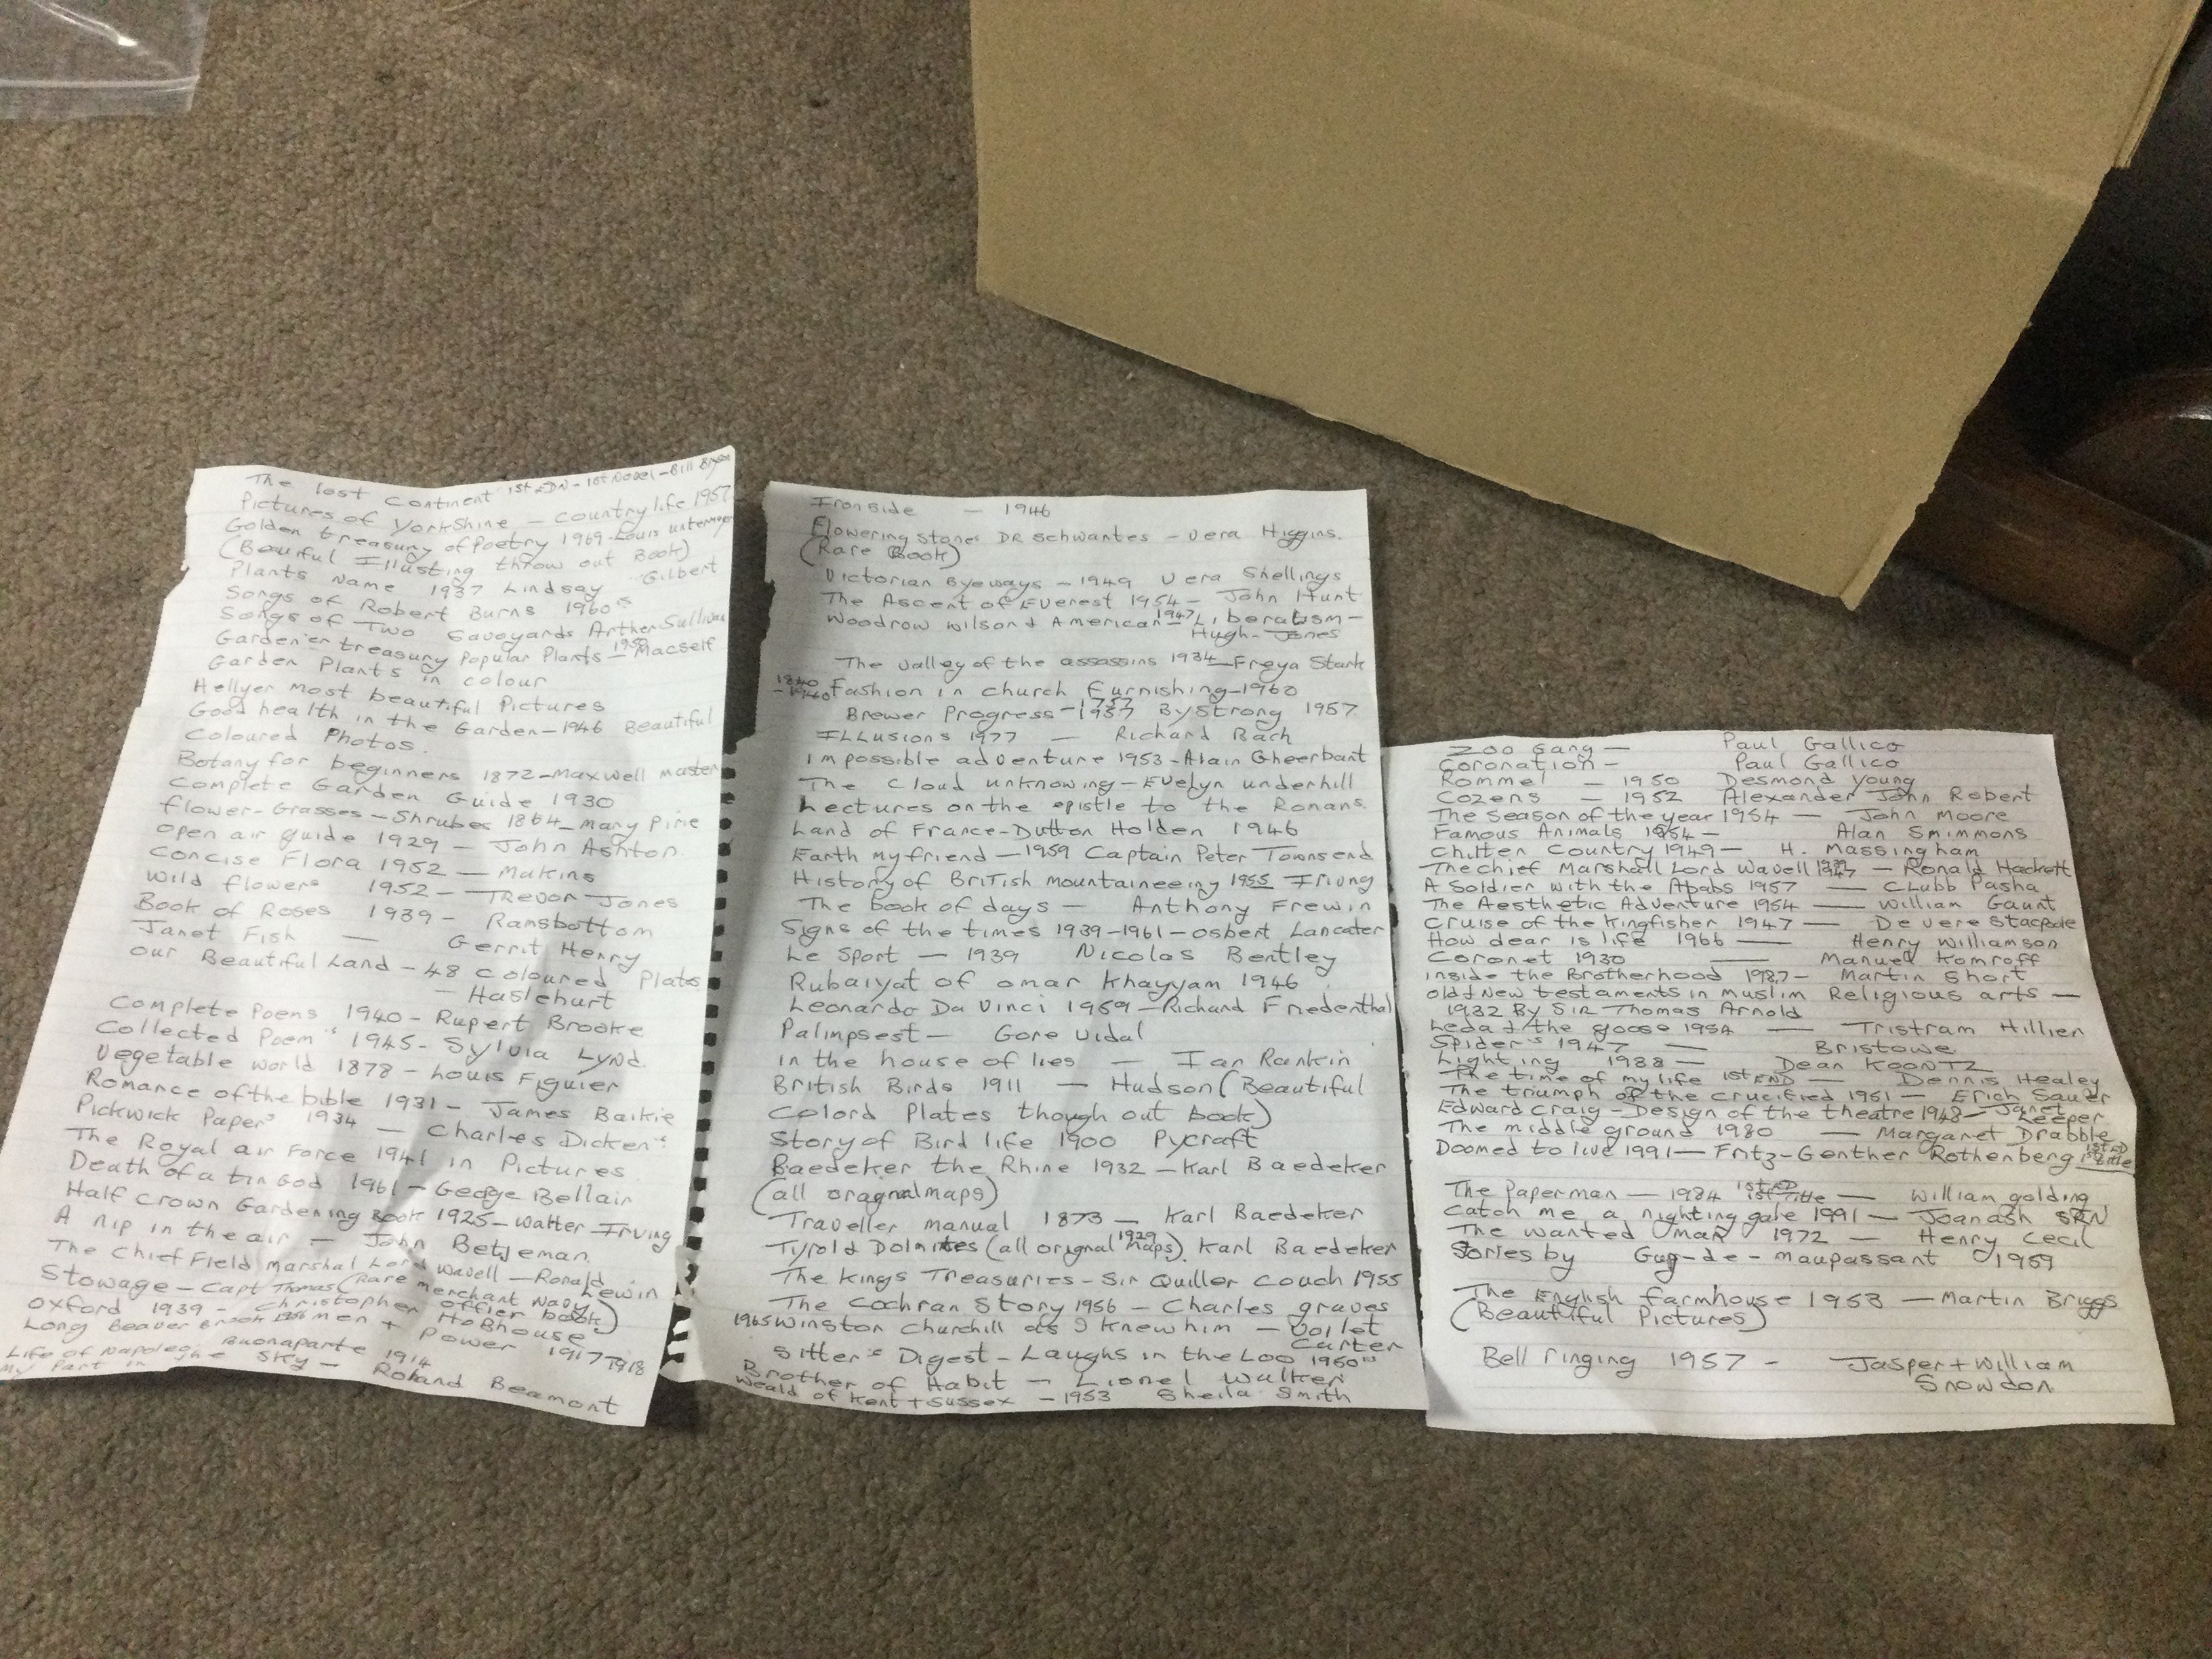 The lost Continent 1st EDN - 1st Novel - Bill
Pictures of Yorkshire - Country life 1957
Golden treasury of Poetry 1969 - Louis untermeyer
(Beauiful Illusting throw out Book)
Plants Name 1937 Lindsay Gilbert
Songs of Robert Burns 1960s
Songs of Two Savoyards Arther Sullivan
Garden'er treasury Popular Plants - Macself
Garden Plants in colour
Hellyer most beautiful Pictures
Good health in the Garden - 1946 Beautiful
Coloured Photos.
Botany for beginners 1872 - Maxwell master
Complete Garden Guide 1930
flower - Grasses - Shrubes 1864 - Mary Pirie
open air guide 1929 - John Ashton
Concise Flora 1952 - Makins
Wild flowers 1952 - Trevor Jones
Book of Roses 1939 - Ramsbottom
Janet Fish - Gerrit Henry
our Beautiful Land - 48 coloured Plates
- Haslehurt
Complete Poems 1940 - Rupert Brooke
Collected Poem's 1945 - Sylvia Lynd.
Vegetable world 1878 - Louis Figuier
Romance of the bible 1931 - James Baikie
Pickwick Papers 1934 - Charles Dicken's
The Royal air Force 1941 in Pictures
Death of a tin God 1961 - George Bellair
Half Crown Gardening Book 1925 - Walter Irving
A nip in the air - John Betjeman.
The Chief Field marshal Lord Wavell - Ronald Lewin
Stowage - Capt Thomas (Rare merchant Navy
offier book)
Oxford 1939 - Christopher Hobhouse
Long Beaver Brook 1956 men + Power 1917 1918
Life of Napoleon Buonaparte 1914
My Part in the Sky - Roland Beamont
Ironside - 1946
Flowering Stones DR Schwantes - Vera Higgins.
(Rare Book)
Victorian Byeways - 1949 Vera Shellings
The Ascent of Everest 1954 - John Hunt
Woodrow Wilson & American 1947 Liberalism -
Hugh-Jones
The valley of the assassins 1934 - Freya Stark
1840 - 1940 Fashion in church Furnishing - 1960
Brewer Progress - 1757 1957 By Strong 1957
ILLusions 1977 - Richard Bach
Impossible adventure 1953 - Alain Gheerbant
The Cloud unknowing - Evelyn underhill
Lectures on the epistle to the Romans.
Land of France - Dutton Holden 1946
Earth my friend - 1959 Captain Peter Townsend
History of British mountaineeing 1955 Irving
The book of days - Anthony Frewin
Signs of the times 1939-1961 - Osbert Lancater
Le Sport - 1939 Nicolas Bentley
Rubaiyat of omar Khayyam 1946
Leonardo Da Vinci 1959 - Richard Friedenthal
Palimpsest - Gore Vidal
in the house of lies - Ian Rankin
British Birds 1911 - Hudson (Beautiful
Colord Plates though out book)
Story of Bird life 1900 Pycraft
Baedeker the Rhine 1932 - Karl Baedeker
(all oragnal maps)
Traveller manual 1873 - Karl Baedeker
Tyrol & Dolmites (all orignal maps) 1929 Karl Baedeker
The Kings Treasuries - Sir Quiller Couch 1955
The Cochran Story 1956 - Charles graves
1965 Winston Churchill as I knew him - Voilet
Carter
Sitter's Digest - Laughs in the Loo 1960s
Brother of Habit - Lionel Walker
Weald of Kent + Sussex - 1953 Sheila Smith
Zoo Gang - Paul Gallico
Coronation - Paul Gallico
Rommel - 1950 Desmond Young
Cozens - 1952 Alexander John Robert
The Season of the year 1954 - John Moore
Famous Animals 1954 - Alan Smimmons
Chilten Country 1949 - H. Massingham
The chief Marshall Lord Wavell 1947 - Ronald Hackett
A Soldier with the Arabs 1957 - CLubb Pasha
The Aesthetic Adventure 1954 - William Gaunt
Cruise of the Kingfisher 1947 - De vere Stacpole
How dear is life 1966 - Henry Williamson
Coronet 1930 - Manuel Komroff
inside the Brotherhood 1987 - Martin Short
old & New testaments in Muslim Religious arts -
1932 By Sir Thomas Arnold
Leda & the goose 1954 - Tristram Hillier
Spider's 1947 - Bristowe
Lighting 1988 - Dean KoontZ
The time of my life 1st END - Dennis Healey
The triumph of the crucified 1951 - Erich Sauer
Edward Craig - Design of the theatre 1948 - Janet Leeper
The middle ground 1980 - Margaret Drabble
Doomed to live 1991 - Fritz-Genther Rothenberg 1st ED 1st title
The Paperman - 1984 1st ED 1st Title - William golding
Catch me a nightingale 1991 - Joanash SRN
The wanted man 1972 - Henry Cecil
Stories by Guy-de-maupassant 1959
The English farmhouse 1953 - Martin Briggs
(Beautiful Pictures)
Bell ringing 1957 - Jasper + William
Snowdon